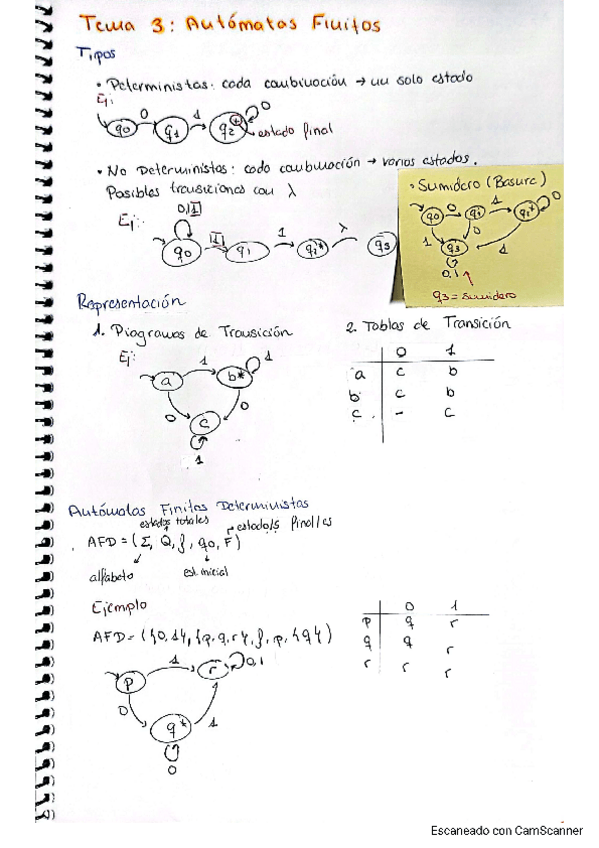 Tema 3: Autómatas Finitos
Tipos
• Deterministas: cada combinación → un solo estado
Ej:
0 1 0
q0 q1 q2* estado final
• No Deterministas: cada combinación → varios estados.
Posibles transiciones con λ
Ej:
0,1 1 1 λ
q0 q1 q2* q3
• Sumidero (Basura)
0 1 0
q0 q1 q2*
1 0 1
q3
0,1
q3 = sumidero
Representación
1. Diagramas de Transición
Ej:
1 1
a b*
0 0
c
1
2. Tablas de Transición
0 1
a c b
b c b
c - c
Autómatas Finitos Deterministas
estados totales
estado/s final/es
AFD = (Σ, Q, f, q0, F)
alfabeto est. inicial
Ejemplo
AFD = ({0,1}, {p,q,r}, f, p, {q})
1 0,1
p r
0 1
q*
0
0 1
p q r
q q r
r r r
Escaneado con CamScanner